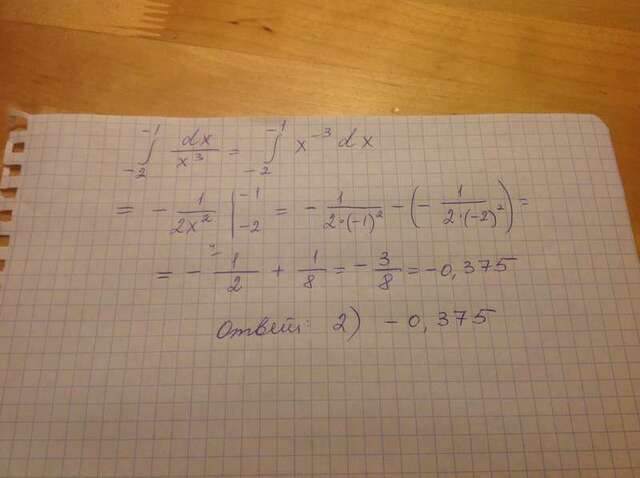 ∫_{-2}^{-1} dx/x³ = ∫_{-2}^{-1} x⁻³ dx
= - 1/2x² |_{-2}^{-1} = - 1/2·(-1)² - (- 1/2·(-2)²) =
= - 1/2 + 1/8 = - 3/8 = -0,375
Ответ: 2) -0,375